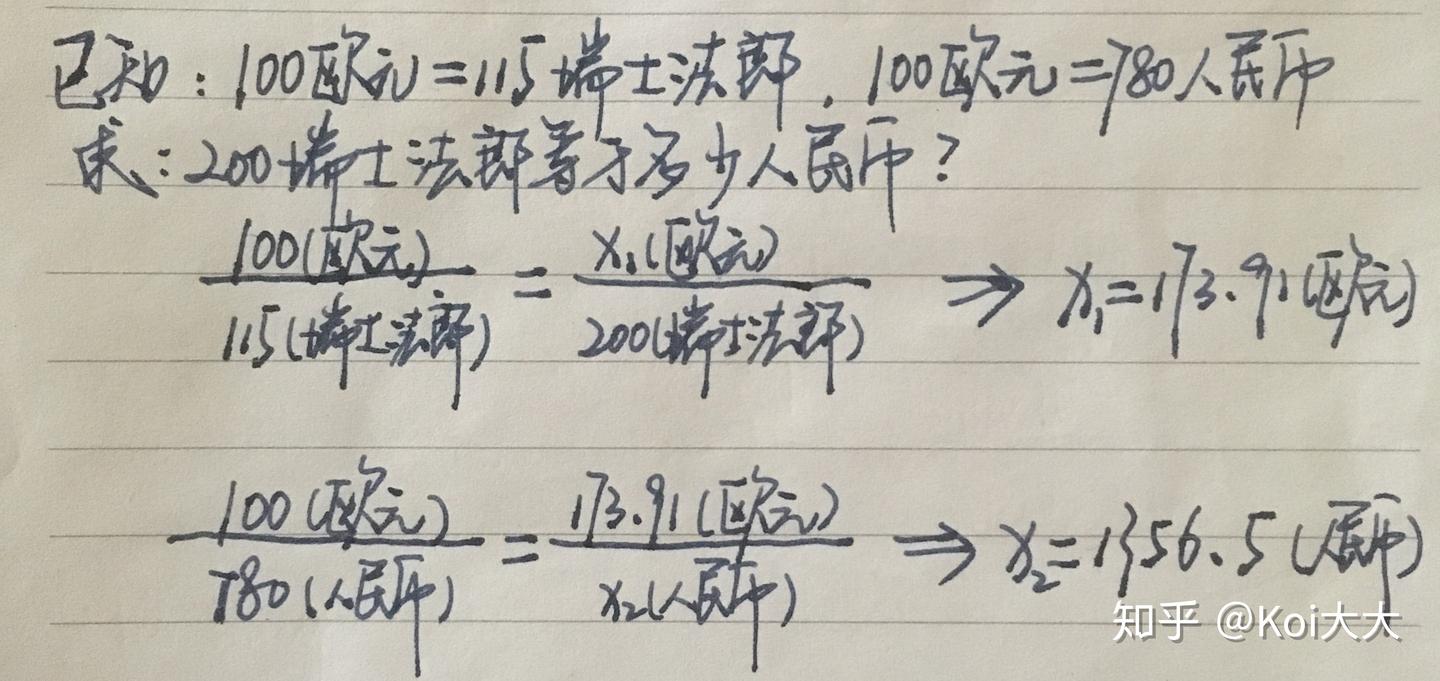 已知：100欧元=115瑞士法郎，100欧元=780人民币
求：200瑞士法郎等于多少人民币？
100(欧元)/115(瑞士法郎) = x₁(欧元)/200(瑞士法郎) ⇒ x₁=173.91(欧元)
100(欧元)/780(人民币) = 173.91(欧元)/x₂(人民币) ⇒ x₂=1356.5(人民币)
知乎 @Koi大大